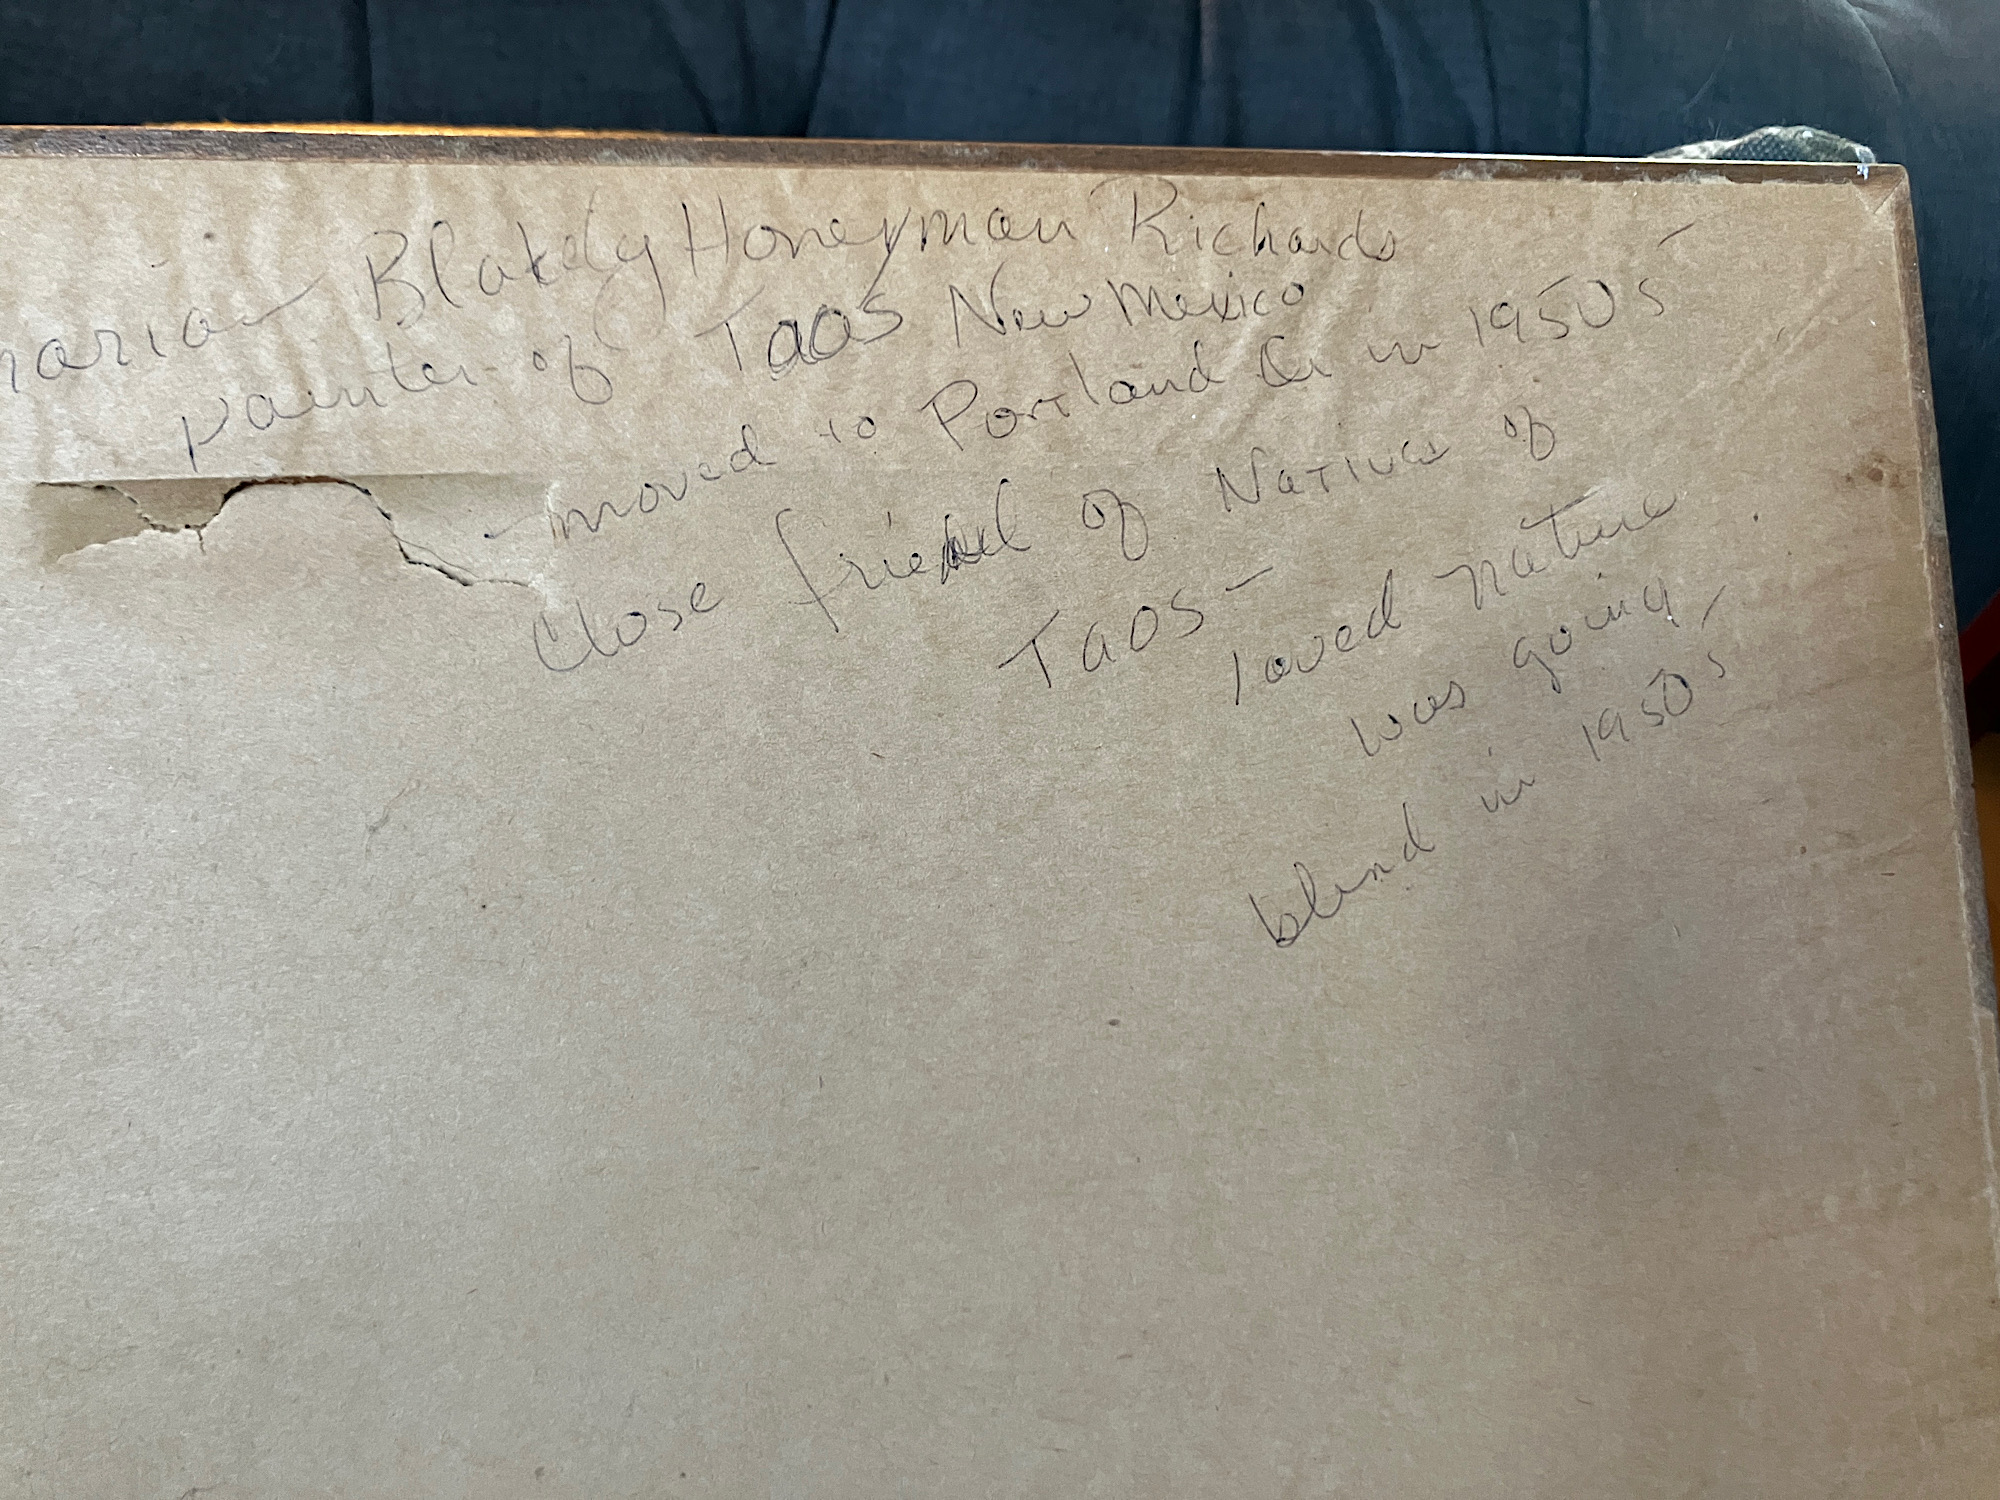 maria Blakely Honeyman Richards
painter of Taos New Mexico
- moved to Portland Or in 1950s -
Close friend of Natives of
Taos -
loved nature
was going
blind in 1950s -